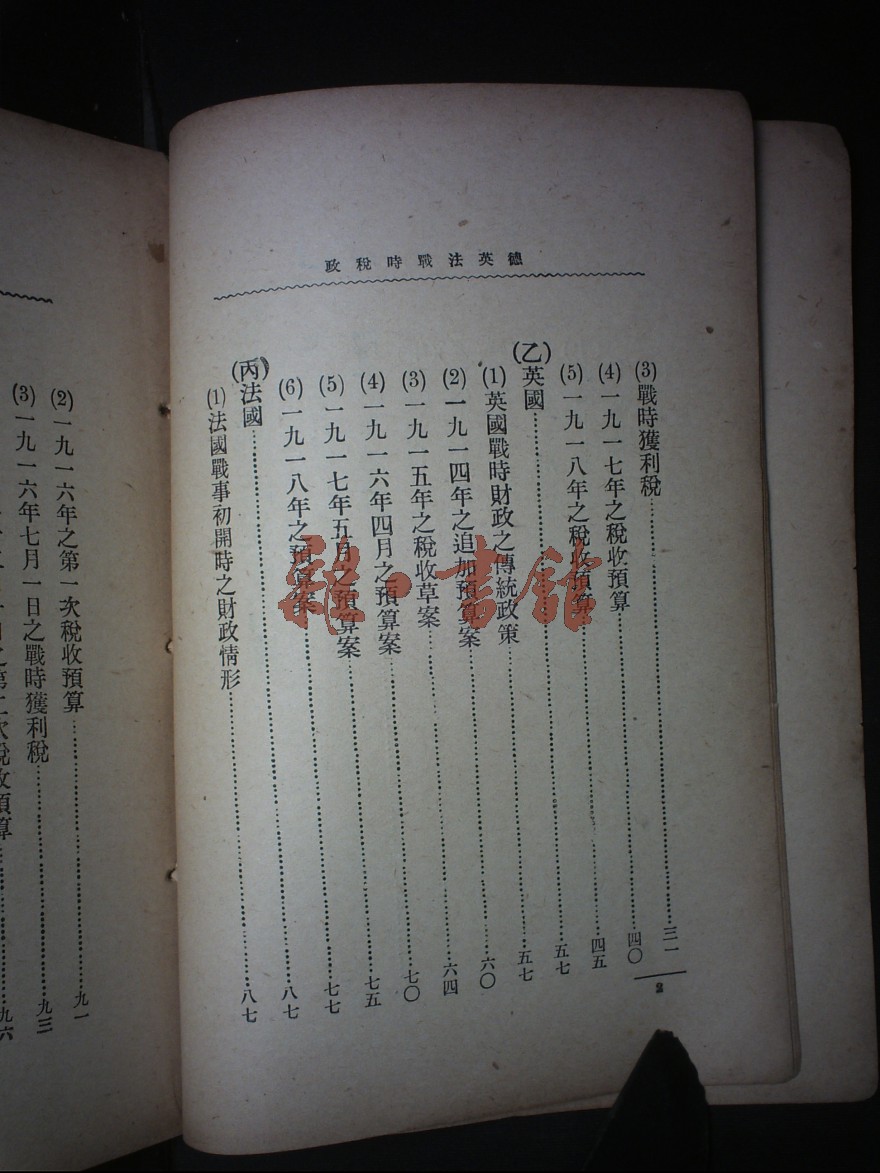 德英法戰時稅政
(3)戰時獲利稅……三一
(4)一九一七年之稅收預算……四〇
(5)一九一八年之稅收預算……四五
(乙)英國……五七
(1)英國戰時財政之傳統政策……五七
(2)一九一四年之追加預算案……六〇
(3)一九一五年之稅收草案……六四
(4)一九一六年四月之預算案……七〇
(5)一九一七年五月之預算案……七五
(6)一九一八年之預算案……七七
(丙)法國……八七
(1)法國戰事初開時之財政情形……八七
2
(2)一九一六年之第一次稅收預算……九一
(3)一九一六年七月一日之戰時獲利稅……九三
日之第二次稅收預算……九六
雜·書館